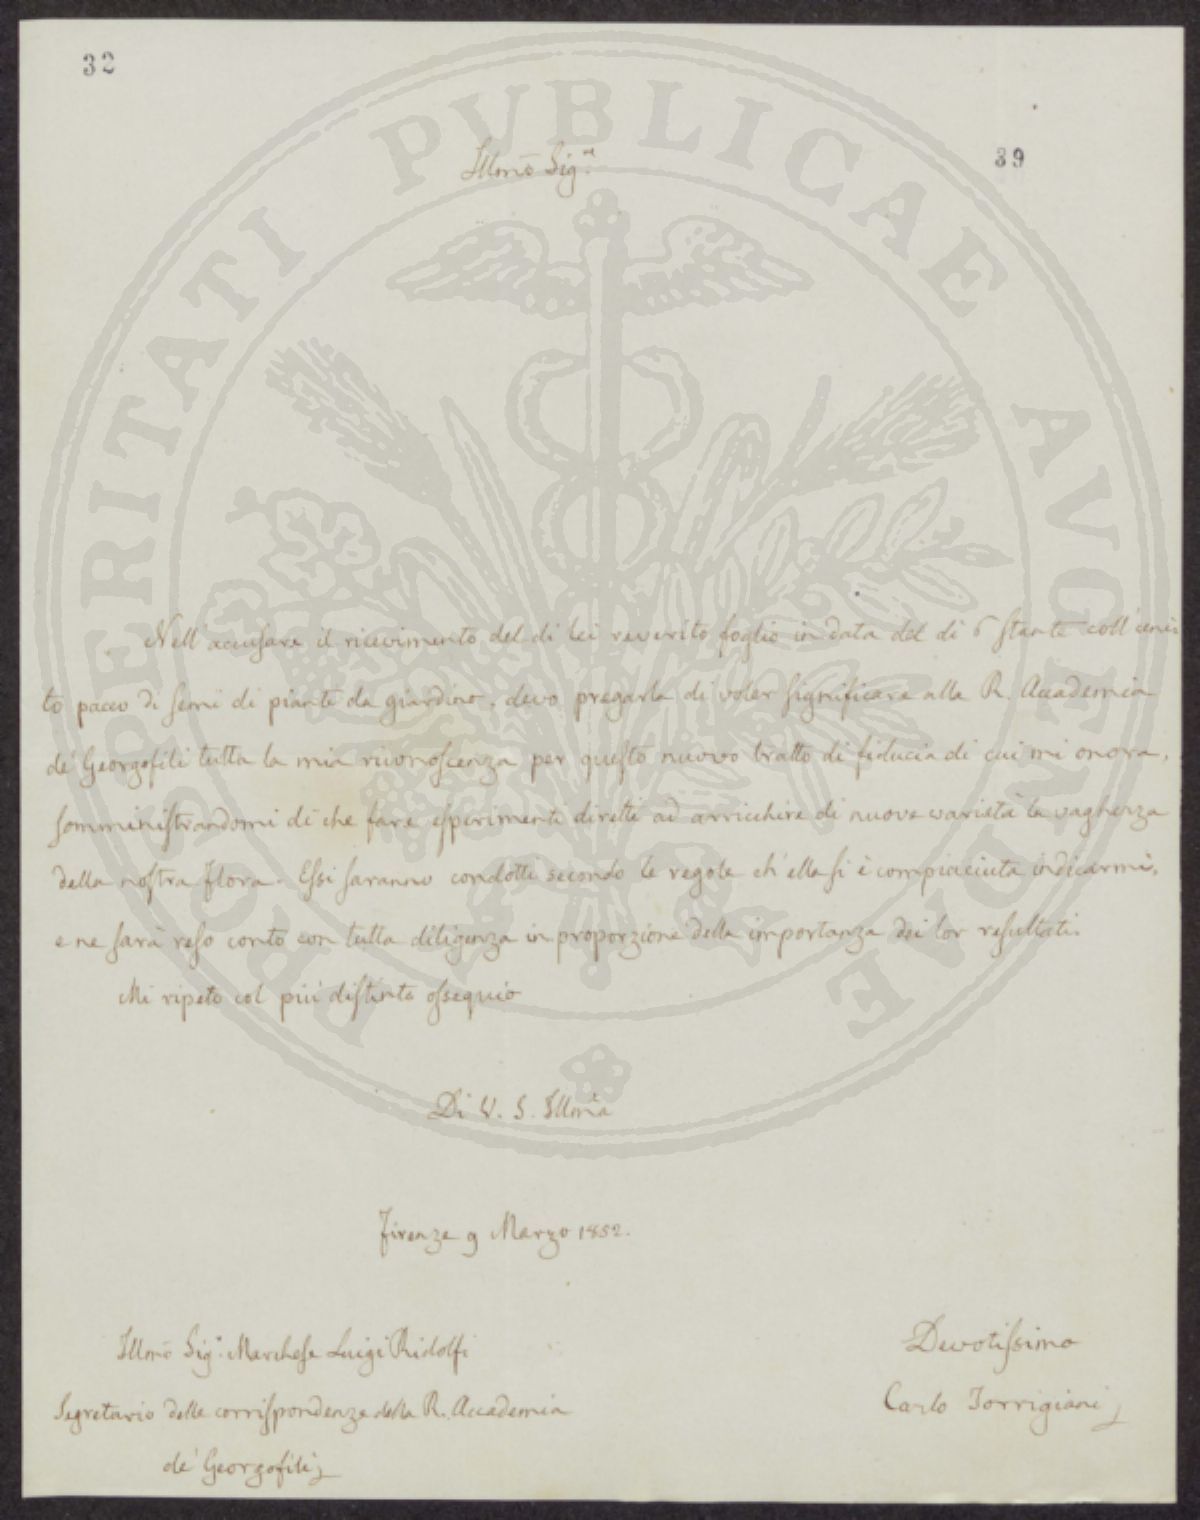 32
39
Illmo Sig.re
Nell' accusare il ricevimento del di lei reverito foglio in data del dì 6 stante coll'
to pacco di semi di piante da giardino, devo pregarla di voler significare alla R. Accademia
de' Georgofili tutta la mia riconoscenza per questo nuovo tratto di fiducia di cui mi onora,
somministrandomi di che fare esperimenti diretti ad arricchire di nuove varietà la vaghezza
della nostra Flora. Essi saranno condotti secondo le regole ch' ella si è compiaciuta indicarmi,
e ne sarà reso conto con tutta diligenza in proporzione della importanza dei lor resultati.
Mi ripeto col più distinto ossequio
Di V. S. Illma
Firenze 9 Marzo 1852.
Illmo Sig.r Marchese Luigi Ridolfi
Segretario delle corrispondenze della R. Accademia
de' Georgofili
Devotissimo
Carlo Torrigiani
PROSPERITATI PUBLICAE AUGENDAE